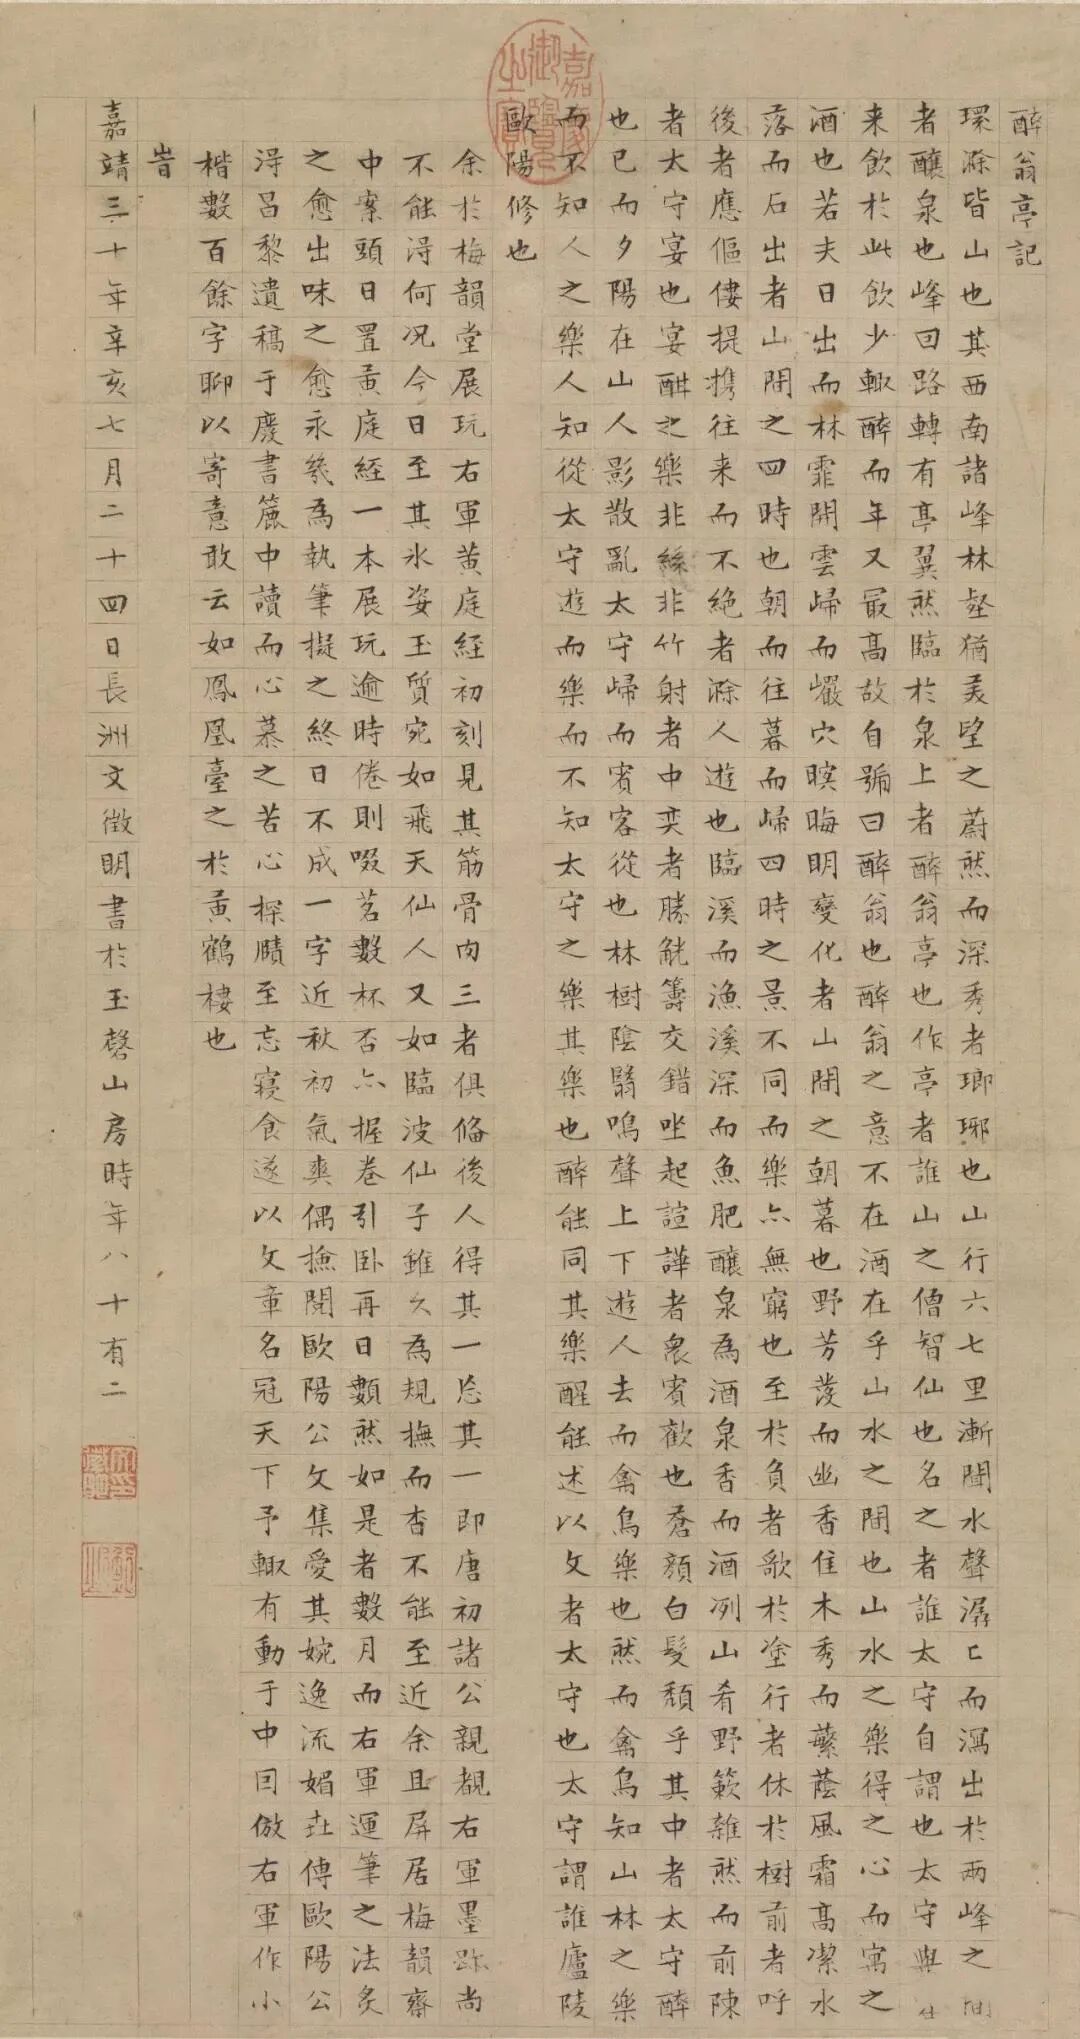 醉翁亭記
環滁皆山也其西南諸峰林壑猶美望之蔚然而深秀者瑯琊也山行六七里漸聞水聲潺〻而瀉出於兩峰之間
者釀泉也峰回路轉有亭翼然臨於泉上者醉翁亭也作亭者誰山之僧智仙也名之者誰太守自謂也太守與
来飲於此飲少輒醉而年又最高故自號曰醉翁也醉翁之意不在酒在乎山水之間也山水之樂得之心而寓之
酒也若夫日出而林霏開雲歸而巖穴暝晦明變化者山間之朝暮也野芳發而幽香佳木秀而蘩蔭風霜高潔水
落而石出者山間之四時也朝而往暮而歸四時之景不同而樂亦無窮也至於負者歌於塗行者休於樹前者呼
後者應傴僂提携往来而不絕者滁人遊也臨溪而漁溪深而魚肥釀泉為酒泉香而酒冽山肴野蔌雜然而前陳
者太守宴也宴酣之樂非絲非竹射者中奕者勝觥籌交錯坐起諠譁者衆賓歡也蒼顏白髮頹乎其中者太守醉
也已而夕陽在山人影散亂太守歸而賓客從也林樹陰翳鳴聲上下遊人去而禽鳥樂也然而禽鳥知山林之樂
而不知人之樂人知從太守遊而樂而不知太守之樂其樂也醉能同其樂醒能述以文者太守也太守謂誰廬陵
歐陽修也
余於梅韻堂展玩右軍黄庭經初刻見其筋骨肉三者俱備後人得其一忘其一即唐初諸公親覩右軍墨跡尚
不能淂何况今日至其氷姿玉質宛如飛天仙人又如臨波仙子雖久為規撫而杳不能至近余且屏居梅韻齋
中案頭日置黄庭經一本展玩逾時倦則啜茗數杯否亦握卷引卧再日顭然如是者數月而右軍運筆之法炙
之愈出味之愈永幾為執筆擬之終日不成一字近秋初氣爽偶撿閱歐陽公文集愛其婉逸流媚世傳歐陽公
淂昌黎遺稿于廢書簏中讀而心慕之苦心探賾至忘寝食遂以文章名冠天下予輙有動于中因倣右軍作小
楷數百餘字聊以寄意敢云如鳳凰臺之於黄鶴樓也
旹
嘉靖三十年辛亥七月二十四日長洲文徵明書於玉磬山房時年八十有二
嘉慶御覽之寶